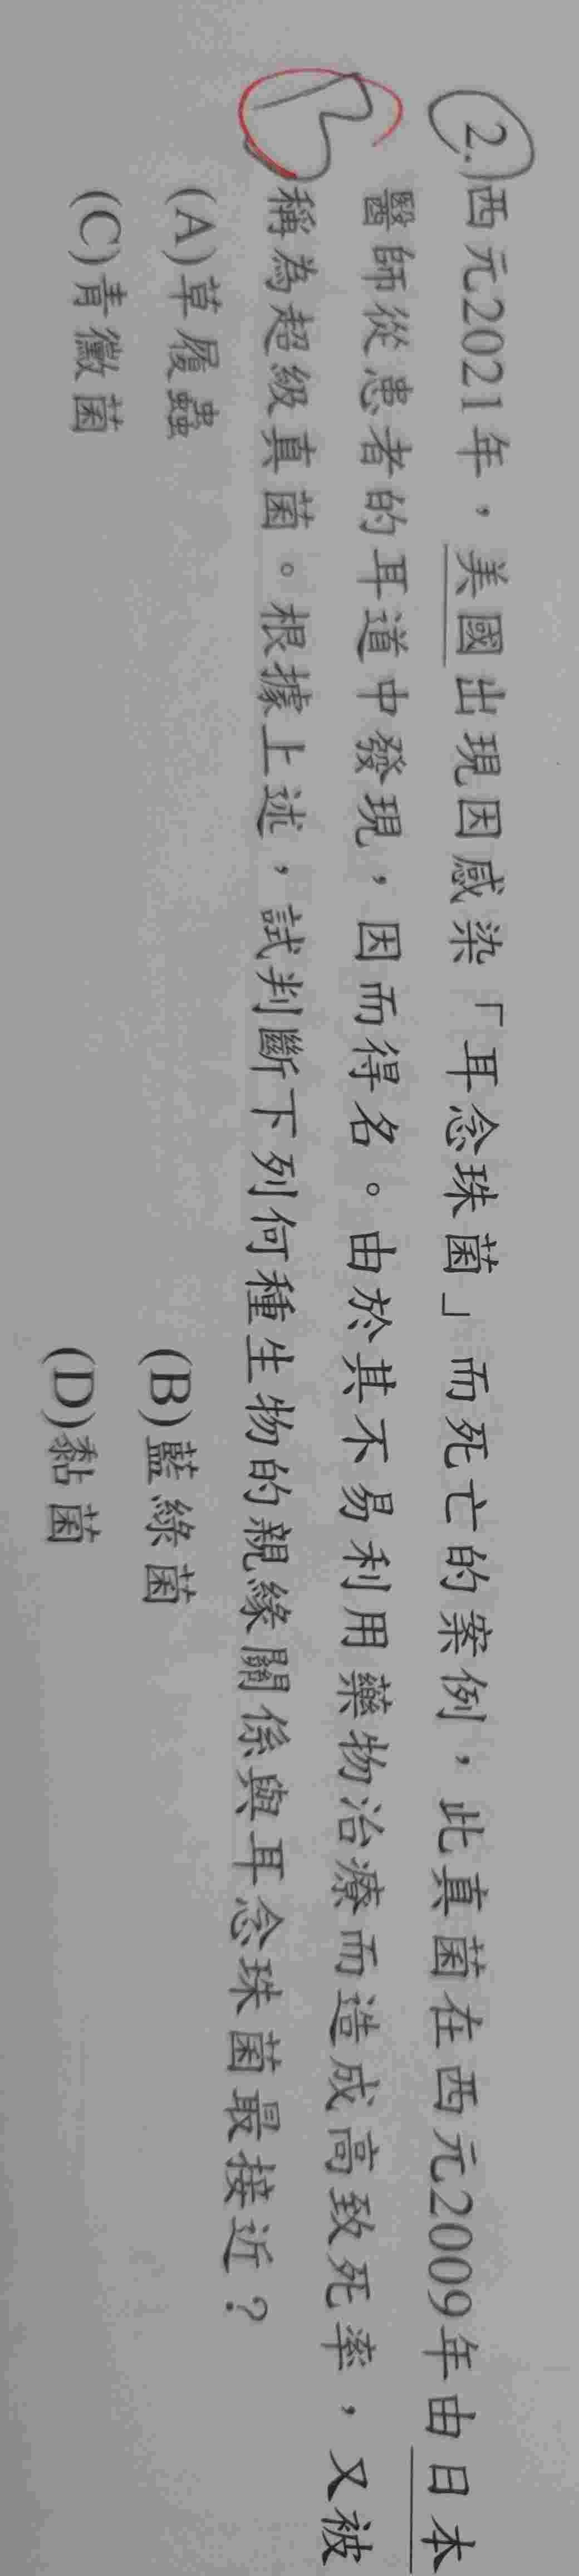 B
2.西元2021年，美國出現因感染「耳念珠菌」而死亡的案例，此真菌在西元2009年由日本
醫師從患者的耳道中發現，因而得名。由於其不易利用藥物治療而造成高致死率，又被
稱為超級真菌。根據上述，試判斷下列何種生物的親緣關係與耳念珠菌最接近？
(A)草履蟲 (B)藍綠菌
(C)青黴菌 (D)黏菌